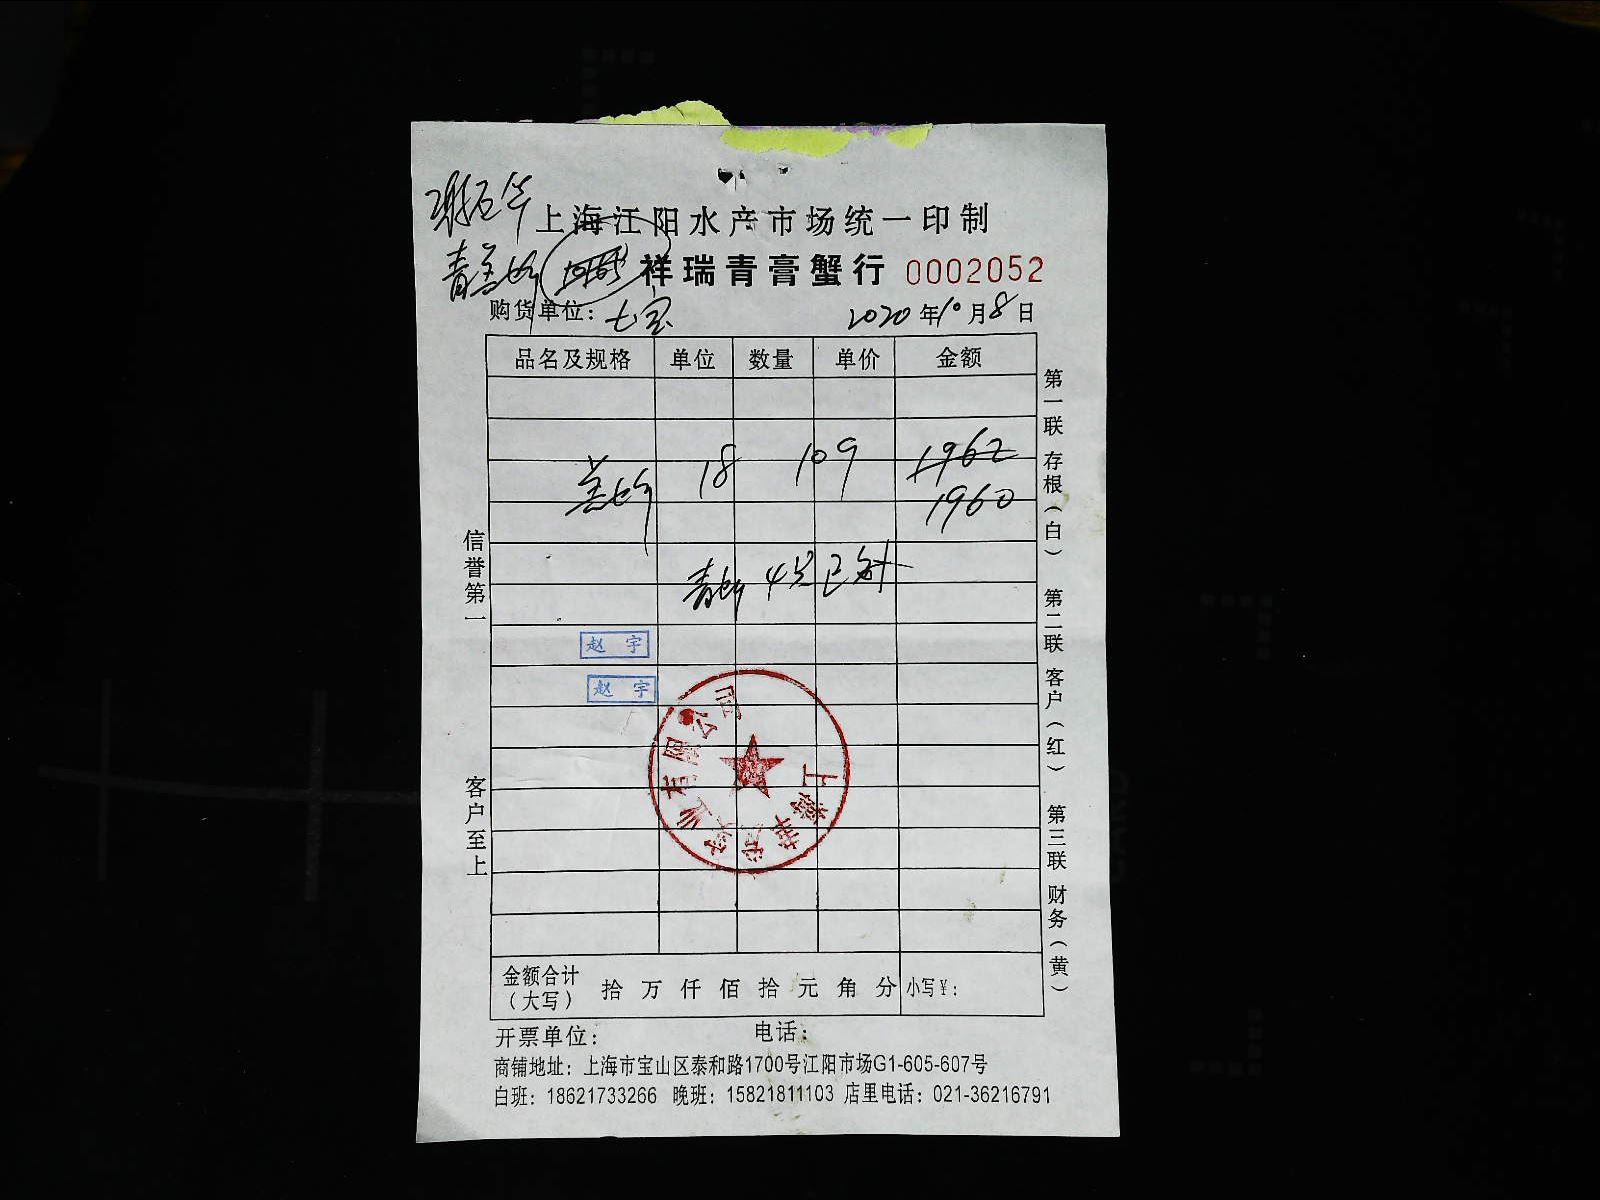 上海江阳水产市场统一印制
祥瑞青膏蟹行 0002052
购货单位：七宝 2020年10月8日
品名及规格 单位 数量 单价 金额
18 109 1962
1960
赵 宇
赵 宇
上海 实业有限公司
金额合计（大写） 拾 万 仟 佰 拾 元 角 分 小写￥：
开票单位： 电话：
商铺地址：上海市宝山区泰和路1700号江阳市场G1-605-607号
白班：18621733266 晚班：15821811103 店里电话：021-36216791
信誉第一 客户至上
第一联 存根（白） 第二联 客户（红） 第三联 财务（黄）